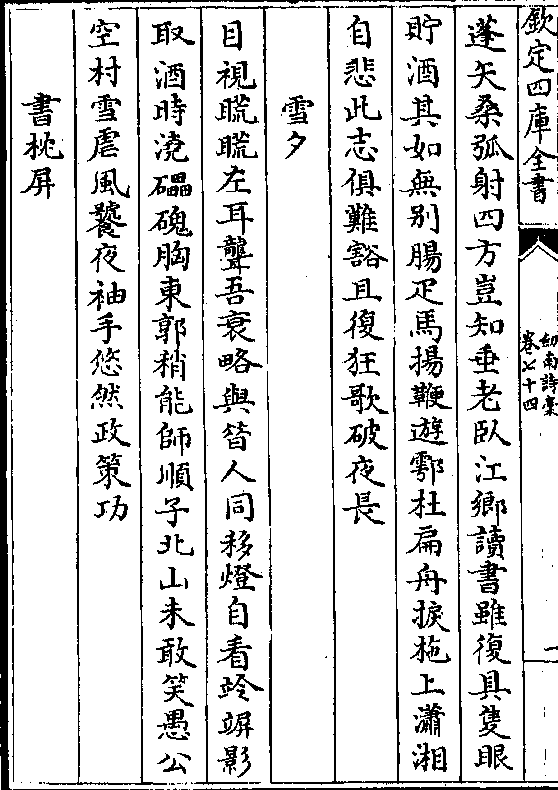 欽定四庫全書
劍南詩稾
卷七十四
一
蓬矢桑弧射四方豈知垂老臥江鄉讀書雖復具隻眼
貯酒其如無別腸疋馬揚鞭遊鄠杜扁舟捩柂上瀟湘
自悲此志俱難豁且復狂歌破夜長
雪夕
目視䀮䀮左耳聾吾衰略與昔人同移燈自看竛竮影
取酒時澆礧磈胸東郭稍能師順子北山未敢笑愚公
空村雪虐風饕夜袖手悠然政策功
書枕屏